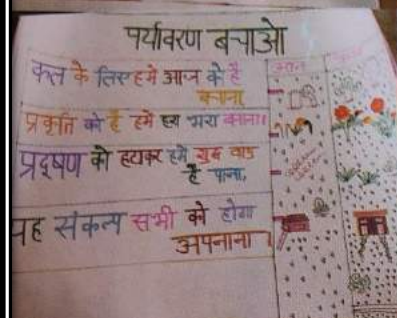 पर्यावरण बचाओ
कल के लिए हमे आज को है
बचाना
प्रकृति को है हमे हरा भरा बनाना।
प्रदूषण को हटाकर हमे शुद्ध वायु
है पाना,
यह संकल्प सभी को होगा
अपनाना।
आज